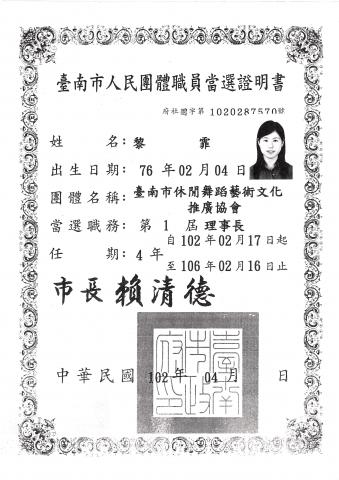 臺南市人民團體職員當選證明書
府社團字第 1020287570號
姓名:黎霏
出生日期:76 年 02 月 04 日
團體名稱:臺南市休閒舞蹈藝術文化
推廣協會
當選職務:第 1 屆 理事長
自 102 年 02 月 17 日起
任期:4 年
至 106 年 02 月 16 日止
市長 賴清德
中華民國 102 年 04 月 日